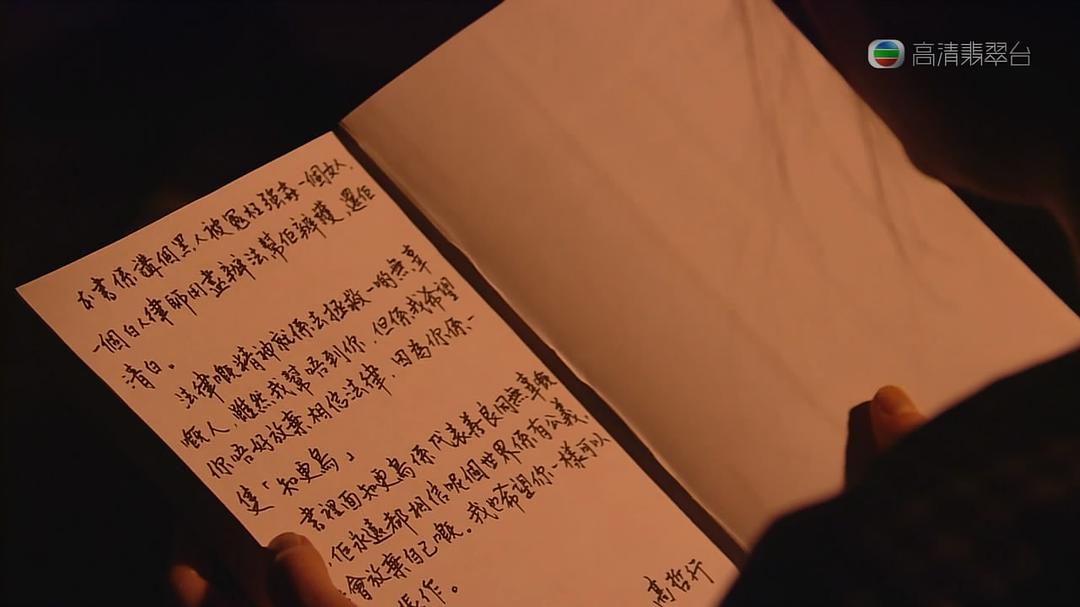 高清翡翠台
本書係講個黑人被冤枉強姦一個女人,
一個白人律師用盡辦法幫佢辯護,還佢
清白。
法律嘅精神就係去拯救一啲無辜
嘅人,雖然我幫唔到你,但係我希望
你唔好放棄相信法律,因為你係一
隻「知更鳥」
書裡面知更鳥係代表善良同無辜
佢永遠都相信呢個世界係有公義,
會放棄自己嘅。我都希望你一樣可以
振作。
高哲行